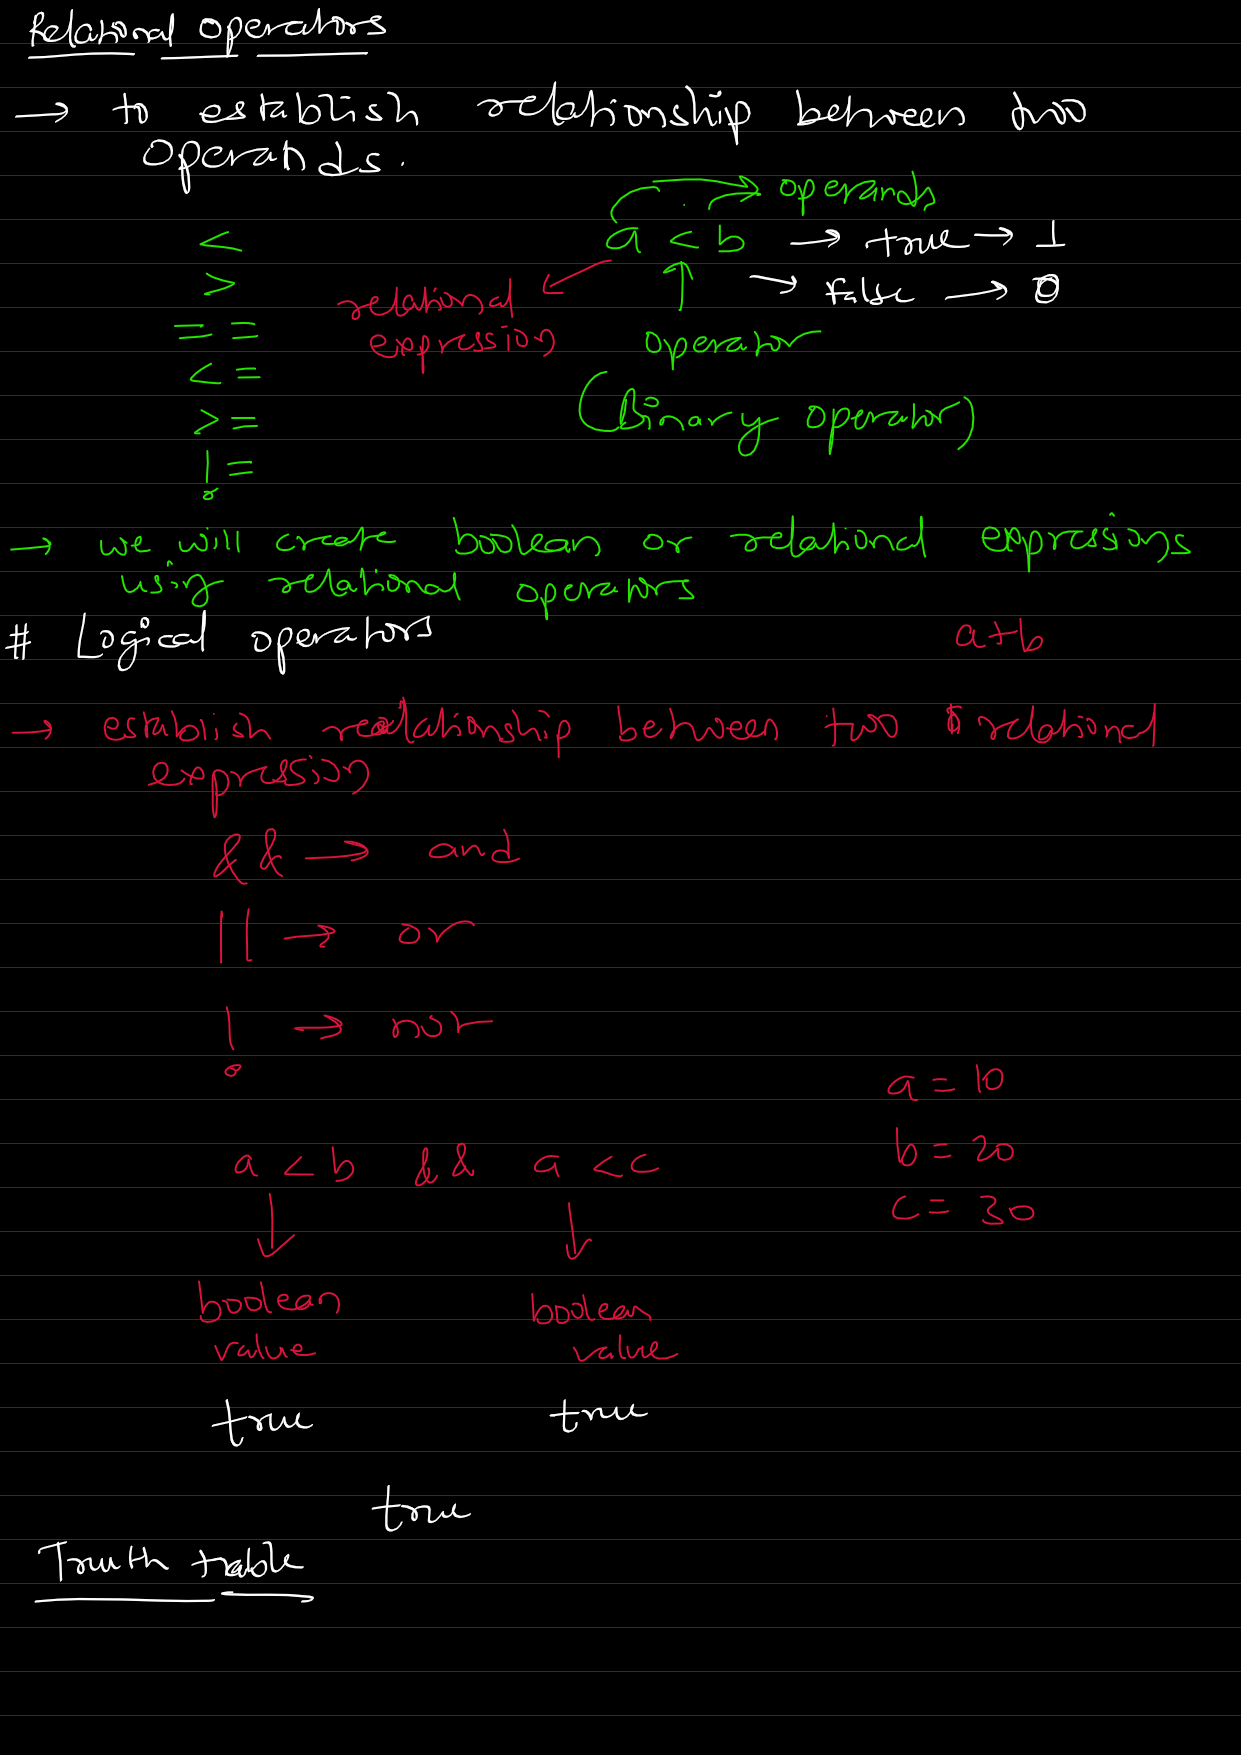 Relational operators
→ to establish relationship between two
operands.
→ operands
< a < b → true → 1
> → false → 0
relational
expression
operator
==
<=
>= (Binary operator)
!=
→ we will create boolean or relational expressions
using relational operators
# Logical operators a+b
→ establish relationship between two relational
expression
&& → and
|| → or
! → not
a = 10
b = 20
a < b && a < c
c = 30
boolean boolean
value value
true true
true
Truth table